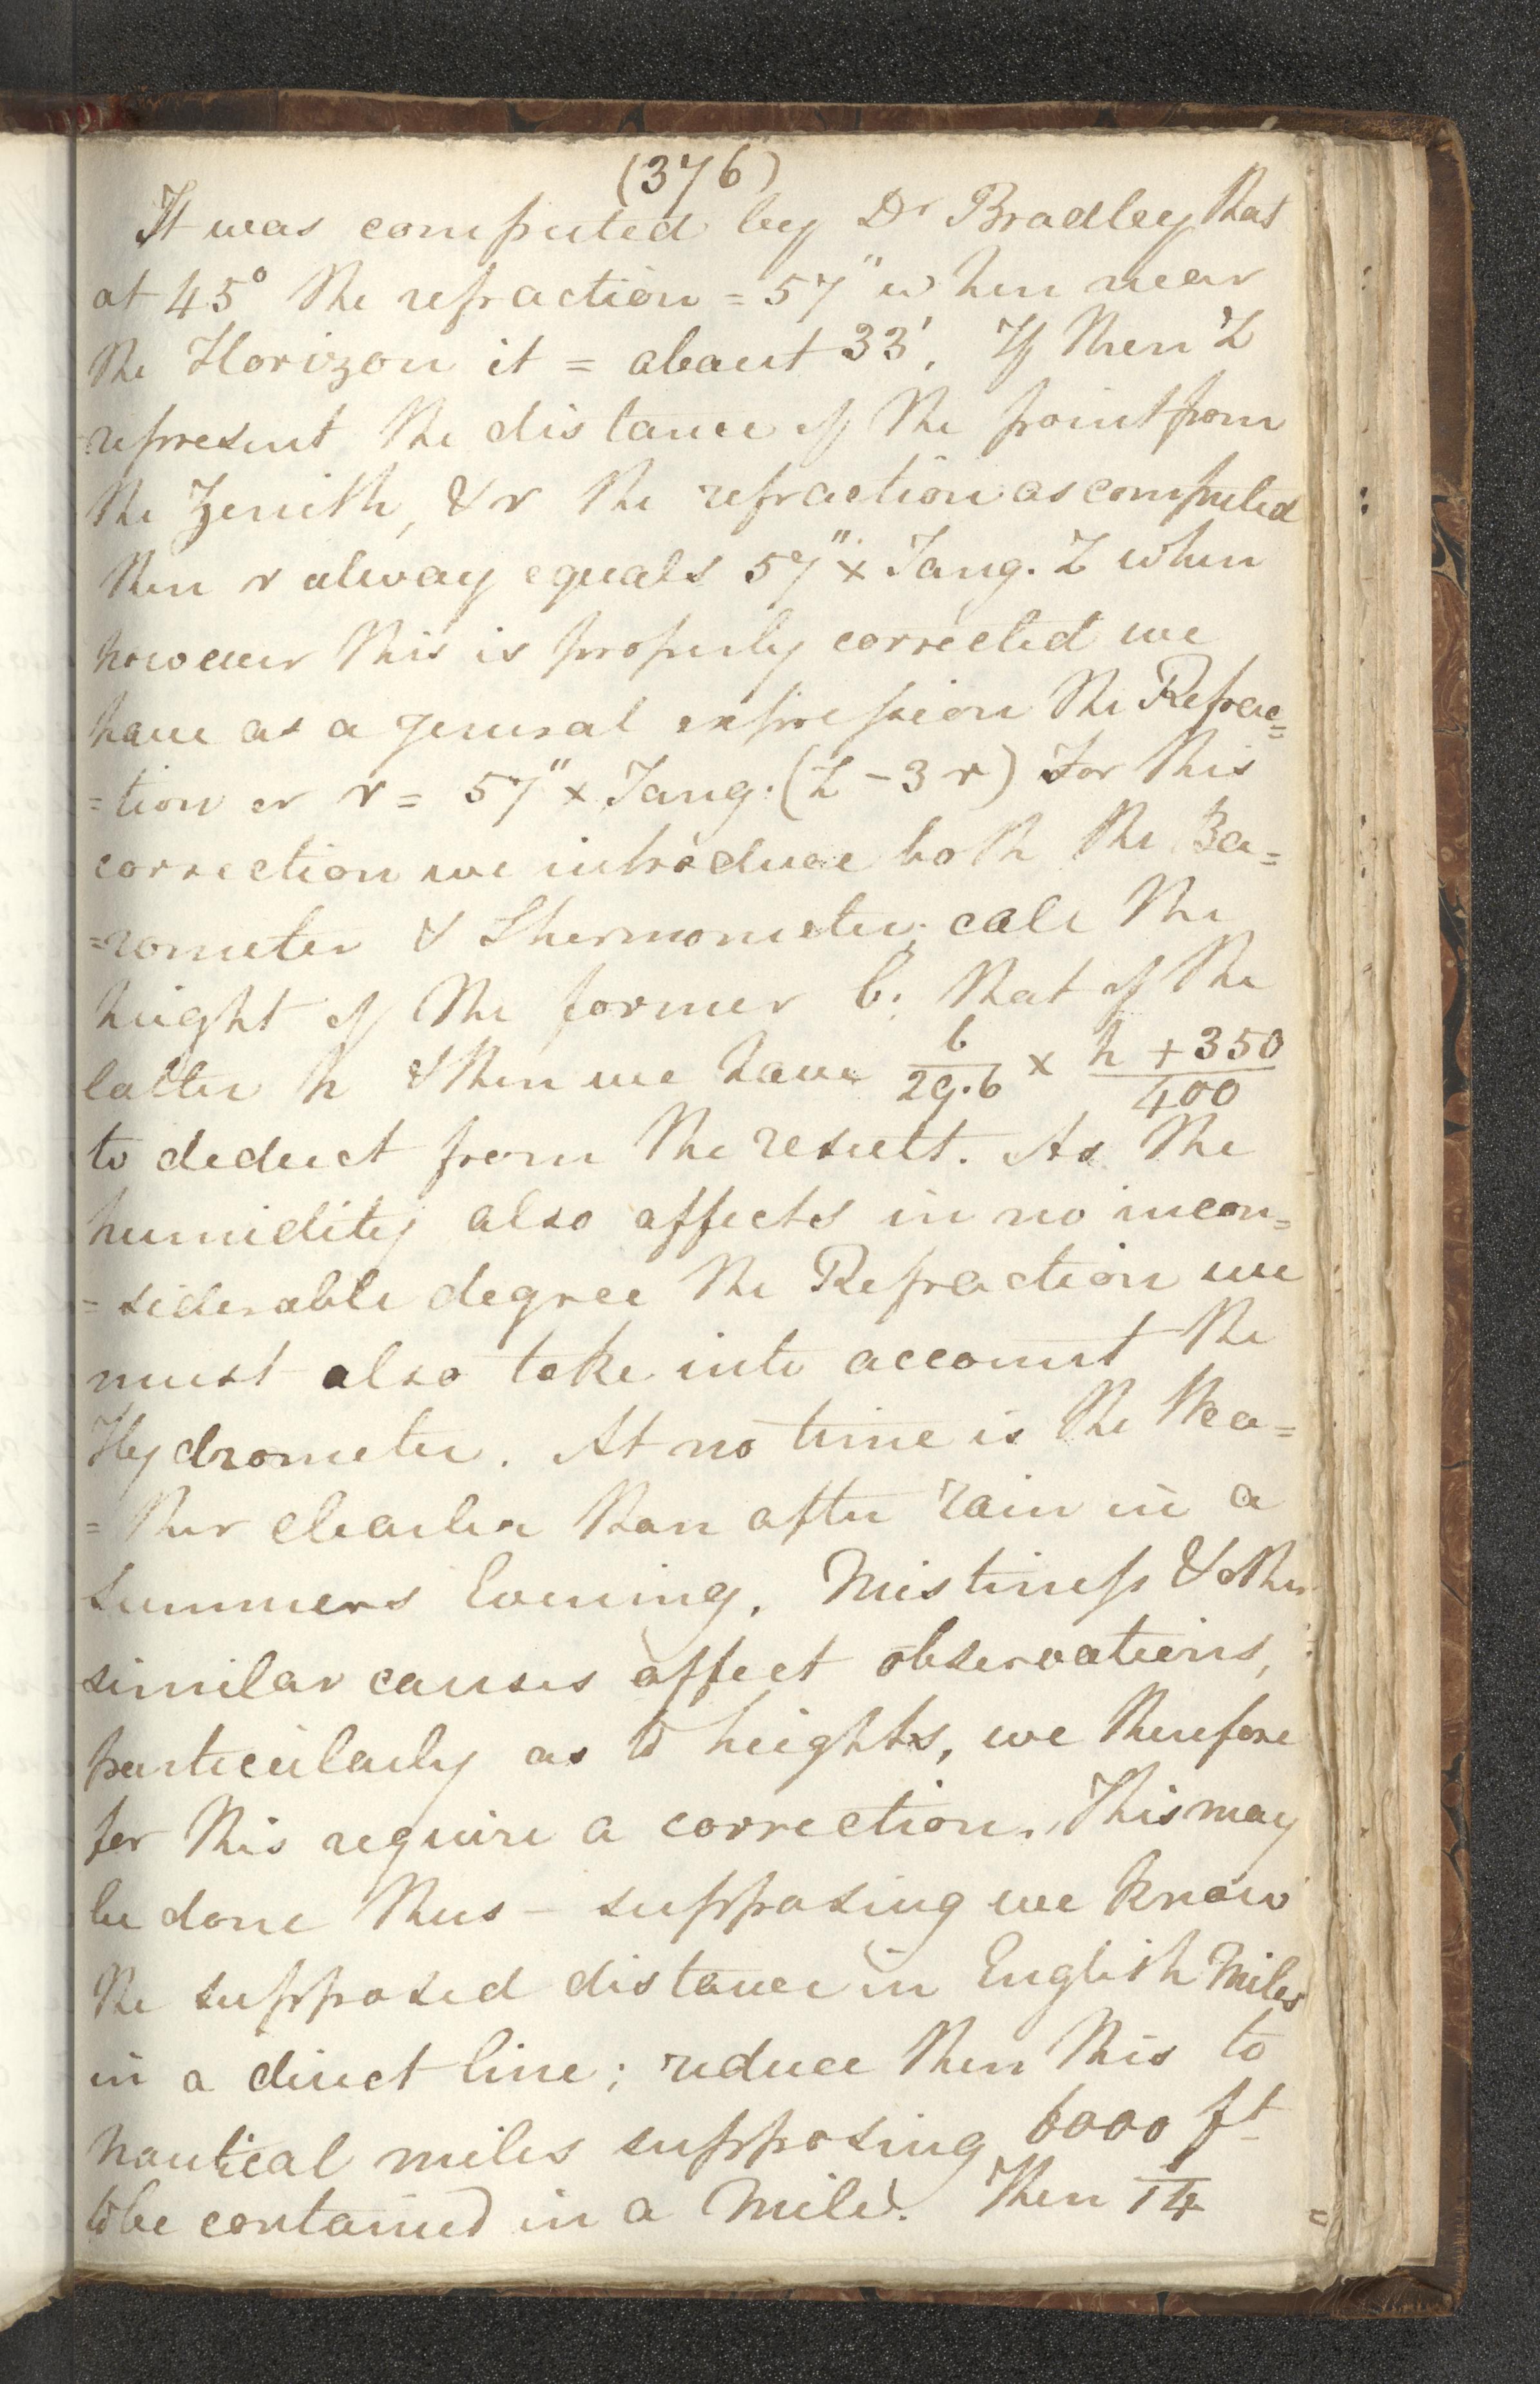 (376)
It was computed by Dr Bradley that
at 45° the refraction = 57" when near
the Horizon it = about 33'. If then Z
represent the distance of the point from
the Zenith, & r the refraction as computed
then r alway equals 57" × Tang. Z when
however this is properly corrected we
have as a general expression the Refrac=
=tion or r = 57" × Tang. (Z - 3r) For this
correction we introduce both the Ba=
=rometer & Thermometer; call the
height of the former b; that of the
latter h & then we have b/29.6 × h + 350/400
to deduct from the result. As the
humidity also affects in no incon=
=siderable degree the Refraction we
must also take into account the
Hydrometer. At no time is the Wea=
=ther clearer than after rain in a
Summers Evening. Mistiness & other
similar causes affect observations,
particularly as to heights, we therefore
for this require a correction. This may
be done thus – supposing we know
the supposed distance in English Miles
in a direct line; reduce then this to
nautical miles supposing 6000 ft
to be contained in a Mile. Then 1/14